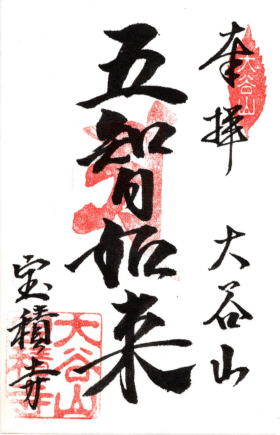 奉拝
大谷山
大谷山
五智如来
宝積寺
大谷山